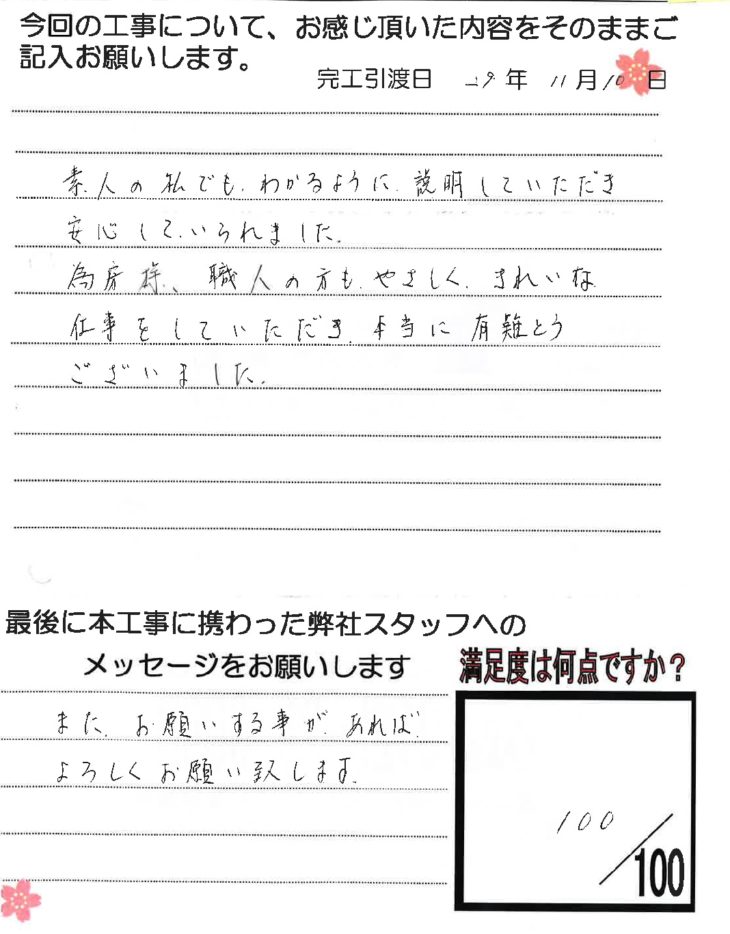 今回の工事について、お感じ頂いた内容をそのままご
記入お願いします。
完工引渡日 29年 11月10日
素人の私でも、わかるように、説明していただき
安心して、いられました。
為房様、職人の方も、やさしく、きれいな
仕事をしていただき、本当に有難とう
ございました。
最後に本工事に携わった弊社スタッフへの
メッセージをお願いします
満足度は何点ですか？
また、お願いする事が、あれば
よろしくお願い致します。
100
/100